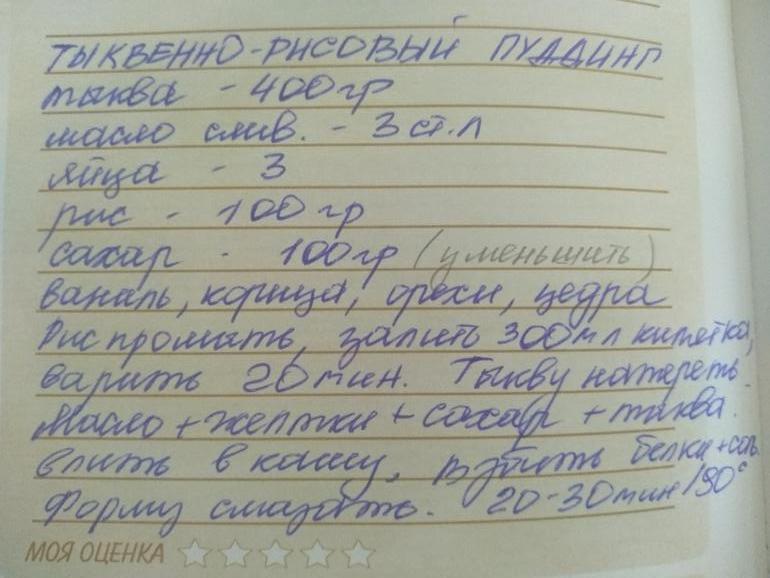 ТЫКВЕННО-РИСОВЫЙ ПУДДИНГ
тыква - 400 гр
масло слив. - 3 ст.л
яйца - 3
рис - 100 гр
сахар - 100 гр (уменьшить)
ваниль, корица, орехи, цедра
Рис промыть, залить 300 мл кипятка,
варить 20 мин. Тыкву натереть.
Масло + желтки + сахар + тыква.
влить в кашу, взбить белки + соль.
Форму смазать. 20-30 мин 190°
МОЯ ОЦЕНКА